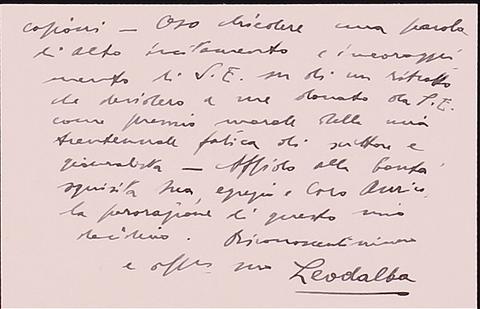 copioni — Oso chiedere una parola
di alto incitamento e incoraggia
mento di S. E. su di un ritratto
che desidero a me donato da S. E.
come premio morale della mia
trentennale fatica di scrittore e
giornalista — Affido alla bontà
squisita sua, egregio e caro Amico,
la perorazione di questo mio
desiderio. Riconoscentissimo
e aff. suo Leodalba